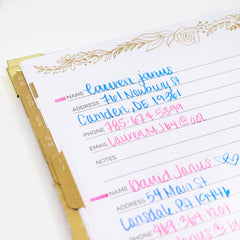 NAME Lauren Janus
ADDRESS 761 Newbury St
Camden, DE 19361
PHONE 785-674-5399
EMAIL LaurenMJ64@aa
NOTES
NAME David Janus
ADDRESS 54 Main St
Lansdale, PA 19446
PHONE 469 364 1201